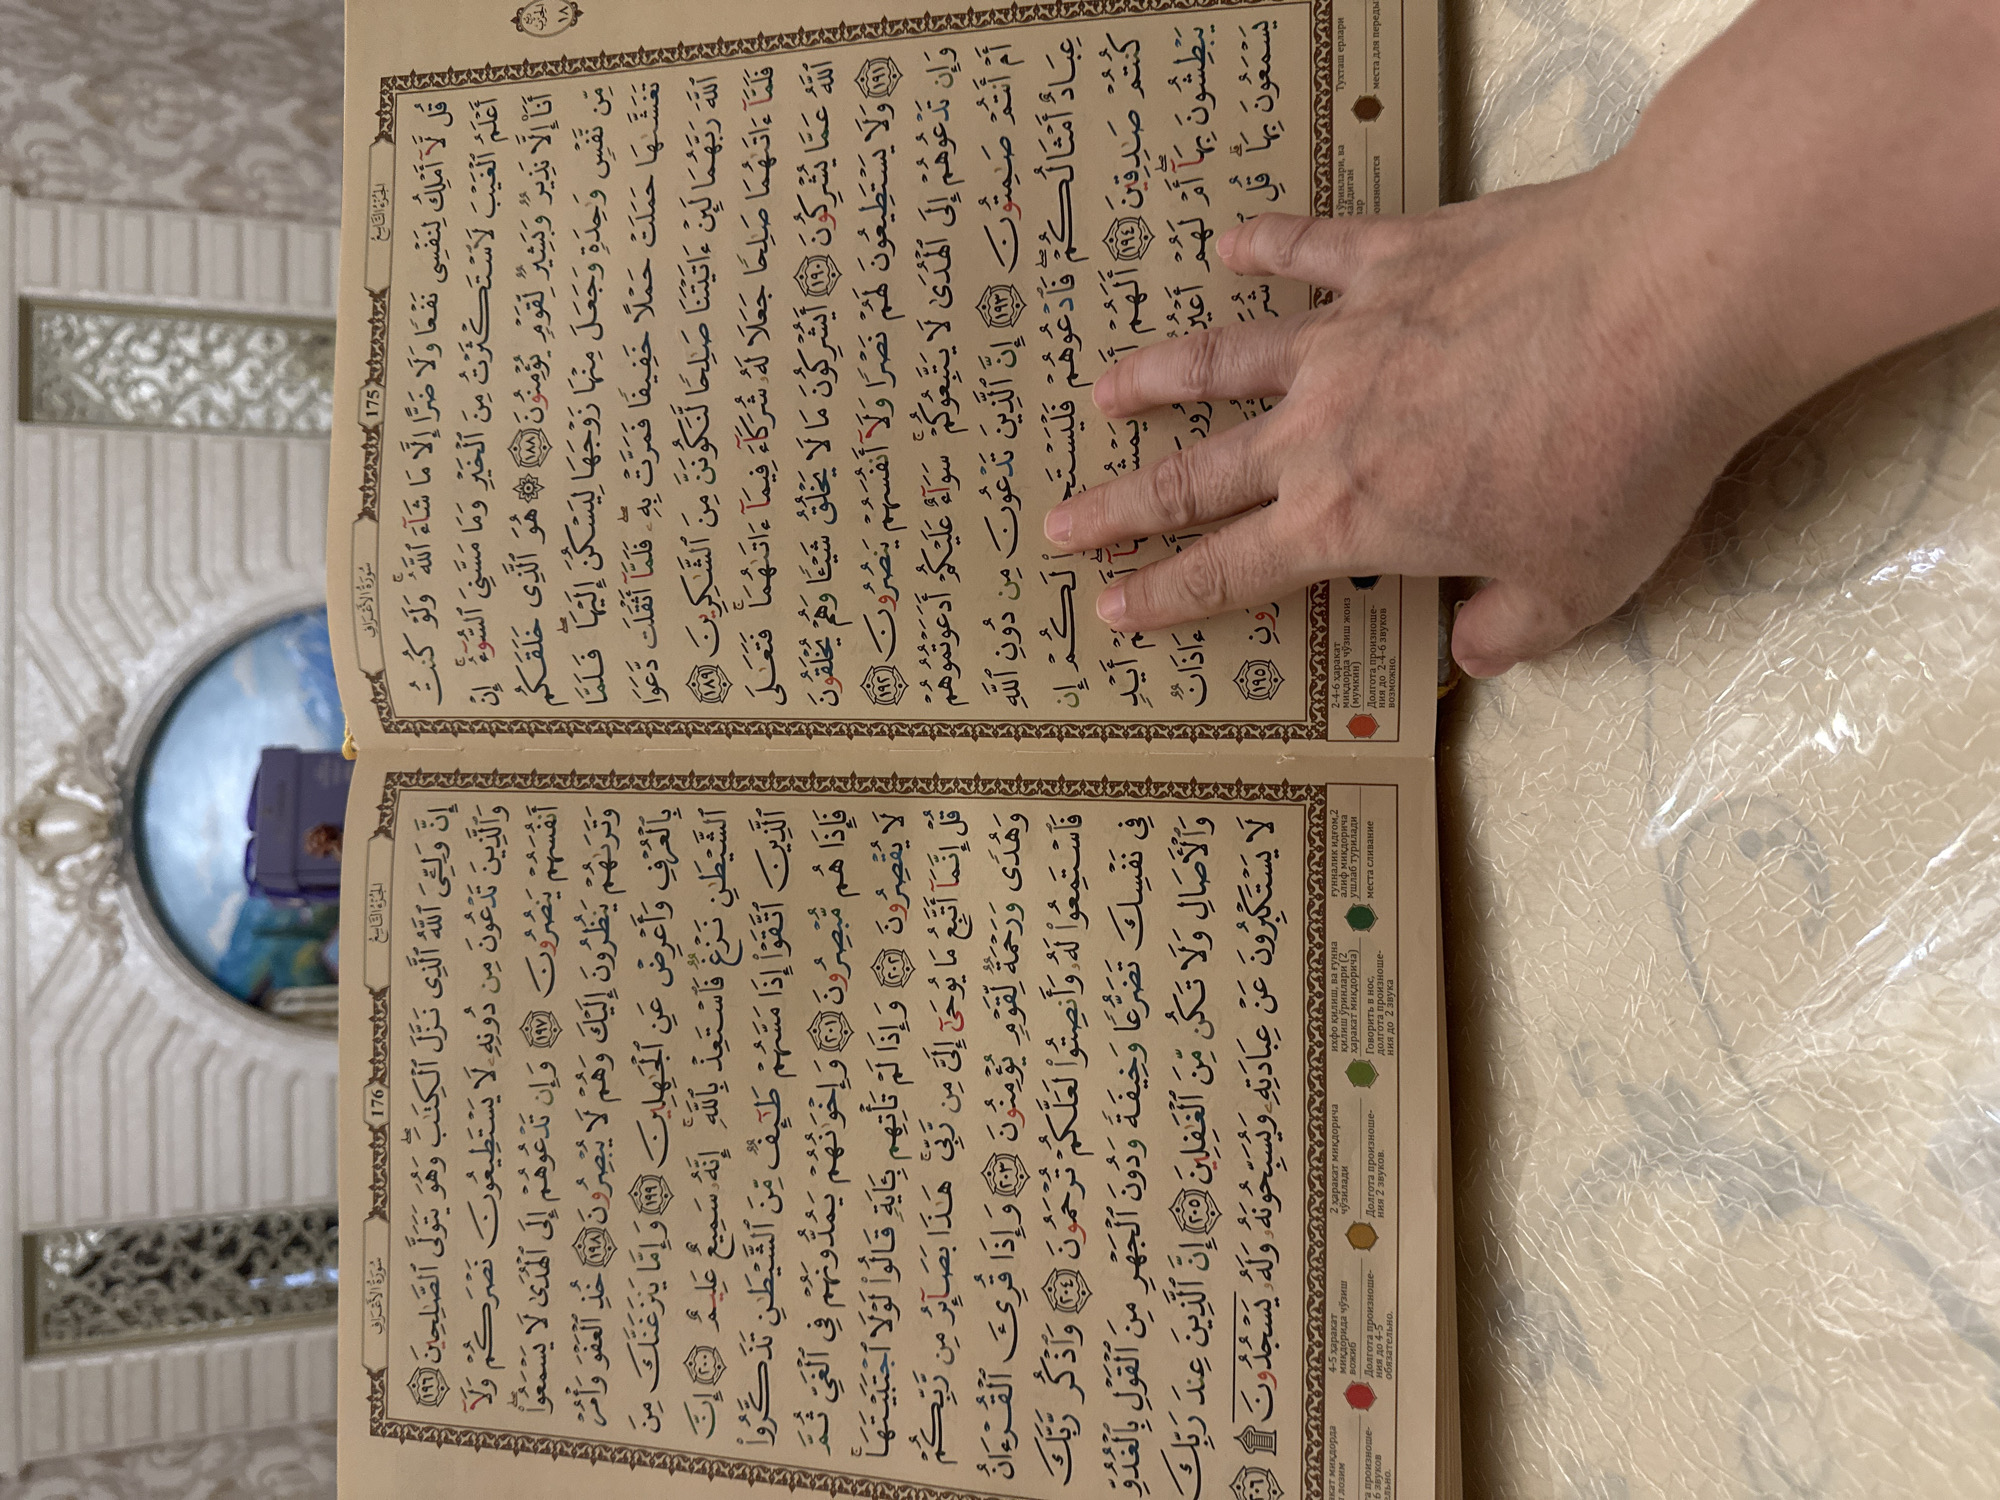 الجزء التاسع
175
سورة الأعراف
قُل لَّآ أَمْلِكُ لِنَفْسِى نَفْعًا وَلَا ضَرًّا إِلَّا مَا شَآءَ ٱللَّهُ ۚ وَلَوْ كُنتُ
أَعْلَمُ ٱلْغَيْبَ لَٱسْتَكْثَرْتُ مِنَ ٱلْخَيْرِ وَمَا مَسَّنِىَ ٱلسُّوٓءُ ۚ إِنْ
أَنَا۠ إِلَّا نَذِيرٌ وَبَشِيرٌ لِّقَوْمٍ يُؤْمِنُونَ ١٨٨ ۞ هُوَ ٱلَّذِى خَلَقَكُم
مِّن نَّفْسٍ وَٰحِدَةٍ وَجَعَلَ مِنْهَا زَوْجَهَا لِيَسْكُنَ إِلَيْهَا ۖ فَلَمَّا
تَغَشَّىٰهَا حَمَلَتْ حَمْلًا خَفِيفًا فَمَرَّتْ بِهِۦ ۖ فَلَمَّآ أَثْقَلَت دَّعَوَا
ٱللَّهَ رَبَّهُمَا لَئِنْ ءَاتَيْتَنَا صَٰلِحًا لَّنَكُونَنَّ مِنَ ٱلشَّٰكِرِينَ ١٨٩
فَلَمَّآ ءَاتَىٰهُمَا صَٰلِحًا جَعَلَا لَهُۥ شُرَكَآءَ فِيمَآ ءَاتَىٰهُمَا ۚ فَتَعَٰلَى
ٱللَّهُ عَمَّا يُشْرِكُونَ ١٩٠ أَيُشْرِكُونَ مَا لَا يَخْلُقُ شَيْـًٔا وَهُمْ يُخْلَقُونَ
١٩١ وَلَا يَسْتَطِيعُونَ لَهُمْ نَصْرًا وَلَآ أَنفُسَهُمْ يَنصُرُونَ ١٩٢
وَإِن تَدْعُوهُمْ إِلَى ٱلْهُدَىٰ لَا يَتَّبِعُوكُمْ ۚ سَوَآءٌ عَلَيْكُمْ أَدَعَوْتُمُوهُمْ
أَمْ أَنتُمْ صَٰمِتُونَ ١٩٣ إِنَّ ٱلَّذِينَ تَدْعُونَ مِن دُونِ ٱللَّهِ
عِبَادٌ أَمْثَالُكُمْ ۖ فَٱدْعُوهُمْ لَكُمْ إِن
كُنتُمْ صَٰدِقِينَ ١٩٤ أَلَهُمْ أَيْدٍ
يَبْطِشُونَ بِهَآ ۖ أَمْ لَهُمْ ءَاذَانٌ
يَسْمَعُونَ بِهَا ۗ قُلِ ١٩٥
١٨
Тухташ ерлари
2-4-6 ҳаракат
миқдорда чўзиш жоиз
(мумкин)
Долгота произноше-
ния до 2-4-6 звуков
возможно.
الجزء التاسع
176
سورة الأعراف
إِنَّ وَلِـِّۧىَ ٱللَّهُ ٱلَّذِى نَزَّلَ ٱلْكِتَٰبَ ۖ وَهُوَ يَتَوَلَّى ٱلصَّٰلِحِينَ ١٩٦
وَٱلَّذِينَ تَدْعُونَ مِن دُونِهِۦ لَا يَسْتَطِيعُونَ نَصْرَكُمْ وَلَآ
أَنفُسَهُمْ يَنصُرُونَ ١٩٧ وَإِن تَدْعُوهُمْ إِلَى ٱلْهُدَىٰ لَا يَسْمَعُوا۟ ۖ
وَتَرَىٰهُمْ يَنظُرُونَ إِلَيْكَ وَهُمْ لَا يُبْصِرُونَ ١٩٨ خُذِ ٱلْعَفْوَ وَأْمُرْ
بِٱلْعُرْفِ وَأَعْرِضْ عَنِ ٱلْجَٰهِلِينَ ١٩٩ وَإِمَّا يَنزَغَنَّكَ مِنَ
ٱلشَّيْطَٰنِ نَزْغٌ فَٱسْتَعِذْ بِٱللَّهِ ۚ إِنَّهُۥ سَمِيعٌ عَلِيمٌ ٢٠٠ إِنَّ
ٱلَّذِينَ ٱتَّقَوْا۟ إِذَا مَسَّهُمْ طَٰٓئِفٌ مِّنَ ٱلشَّيْطَٰنِ تَذَكَّرُوا۟
فَإِذَا هُم مُّبْصِرُونَ ٢٠١ وَإِخْوَٰنُهُمْ يَمُدُّونَهُمْ فِى ٱلْغَىِّ ثُمَّ
لَا يُقْصِرُونَ ٢٠٢ وَإِذَا لَمْ تَأْتِهِم بِـَٔايَةٍ قَالُوا۟ لَوْلَا ٱجْتَبَيْتَهَا ۚ
قُلْ إِنَّمَآ أَتَّبِعُ مَا يُوحَىٰٓ إِلَىَّ مِن رَّبِّى ۚ هَٰذَا بَصَآئِرُ مِن رَّبِّكُمْ
وَهُدًى وَرَحْمَةٌ لِّقَوْمٍ يُؤْمِنُونَ ٢٠٣ وَإِذَا قُرِئَ ٱلْقُرْءَانُ
فَٱسْتَمِعُوا۟ لَهُۥ وَأَنصِتُوا۟ لَعَلَّكُمْ تُرْحَمُونَ ٢٠٤ وَٱذْكُر رَّبَّكَ
فِى نَفْسِكَ تَضَرُّعًا وَخِيفَةً وَدُونَ ٱلْجَهْرِ مِنَ ٱلْقَوْلِ بِٱلْغُدُوِّ
وَٱلْءَاصَالِ وَلَا تَكُن مِّنَ ٱلْغَٰفِلِينَ ٢٠٥ إِنَّ ٱلَّذِينَ عِندَ رَبِّكَ
لَا يَسْتَكْبِرُونَ عَنْ عِبَادَتِهِۦ وَيُسَبِّحُونَهُۥ وَلَهُۥ يَسْجُدُونَ ۩ ٢٠٦
4-5 ҳаракат
миқдорида чўзиш
вожиб
Долгота произноше-
ния до 4-5
обязательно.
2 ҳаракат миқдорича
чўзилади
Долгота произноше-
ния 2 звуков.
ихфо қилиш, ва ғунна
қилиш ўринлари (2
ҳаракат миқдорича)
Говорить в нос,
долгота произноше-
ния до 2 звука
ғунналик идғом,2
алиф миқдорича
ушлаб турилади
места сливание